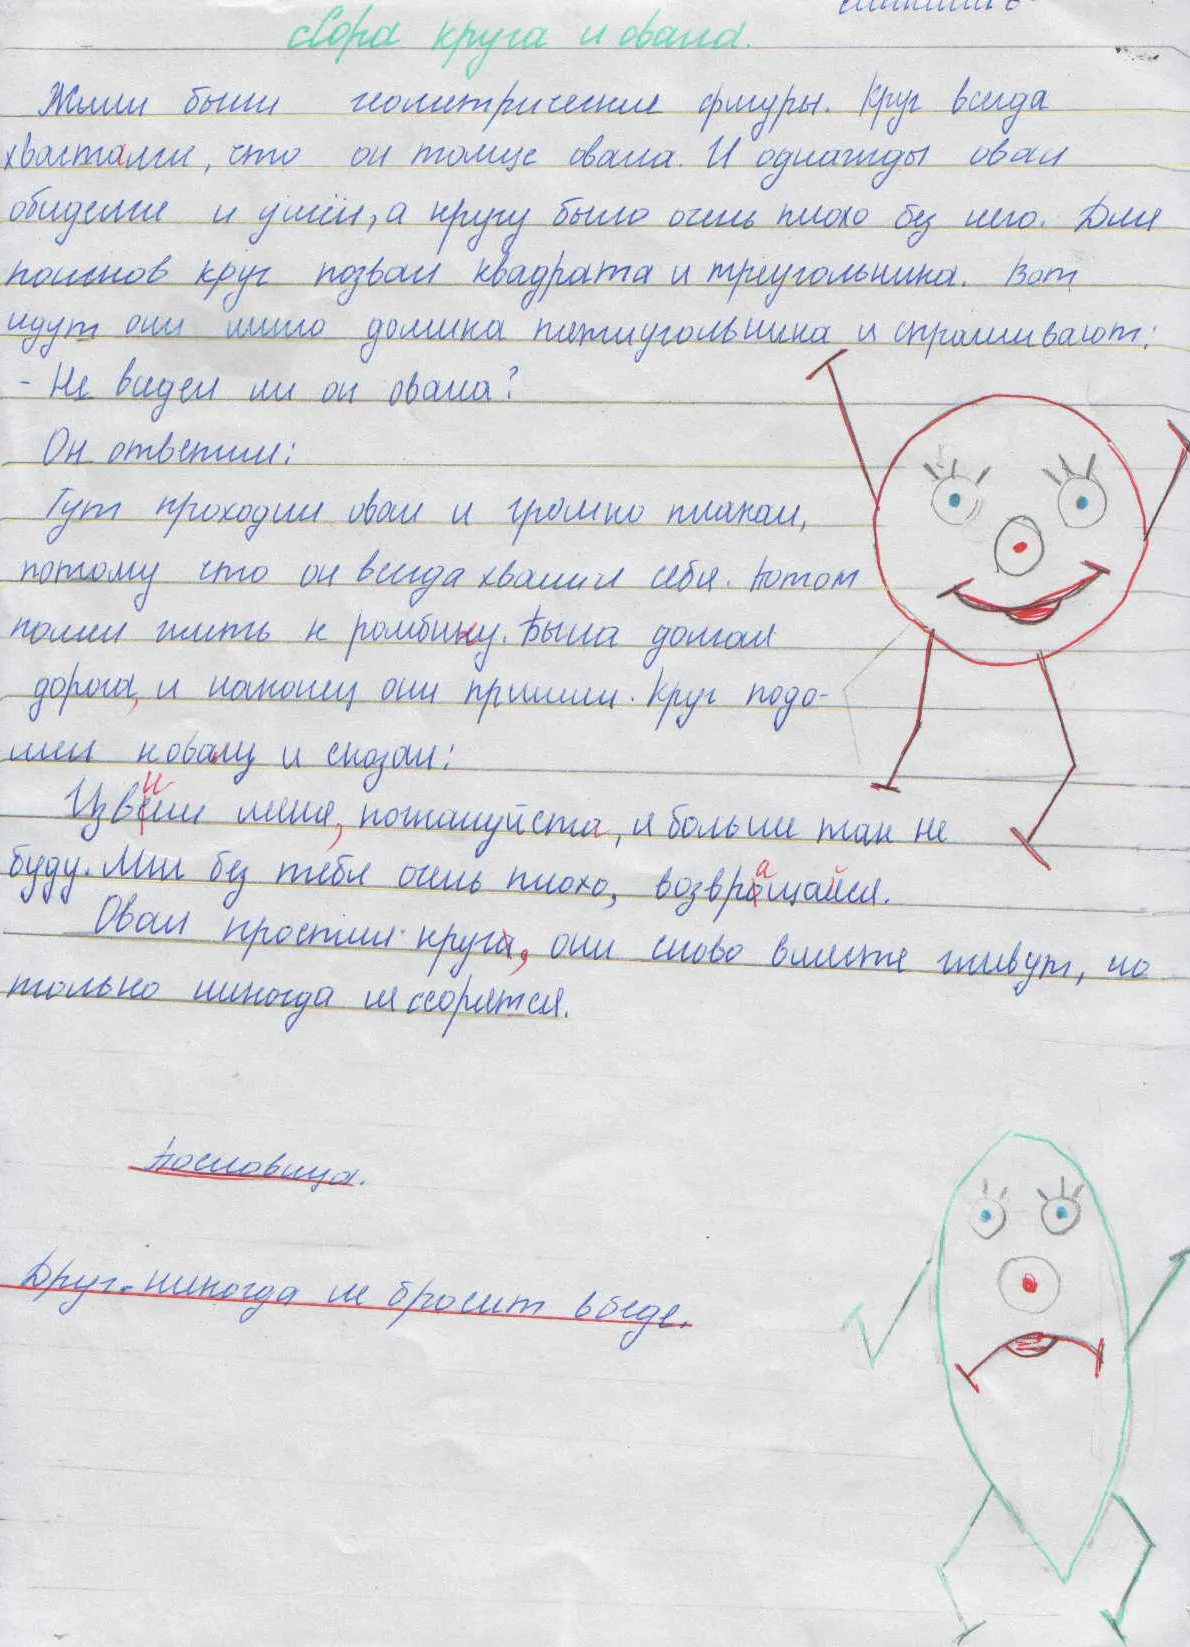 сСора круга и овала.
Жили были геометрические фигуры. Круг всегда
хвастался, что он толще овала. И однажды овал
обиделся и ушёл, а кругу было очень плохо без него. Для
поисков круг позвал квадрата и треугольника. Вот
идут они мимо домика пятиугольника и спрашивают:
- Не видел ли он овала?
Он ответил:
Тут проходил овал и громко плакал,
потому что он всегда хвалил себя. Потом
пошел жить к ромбику. Была долгая
дорога, и наконец они пришли. Круг подо-
шел к овалу и сказал:
Извини меня, пожалуйста, я больше так не
буду. Мне без тебя очень плохо, возвращайся.
Овал простил круга, они снова вместе живут, но
только никогда не ссорятся.
Пословица.
Друг-никогда не бросит в беде.